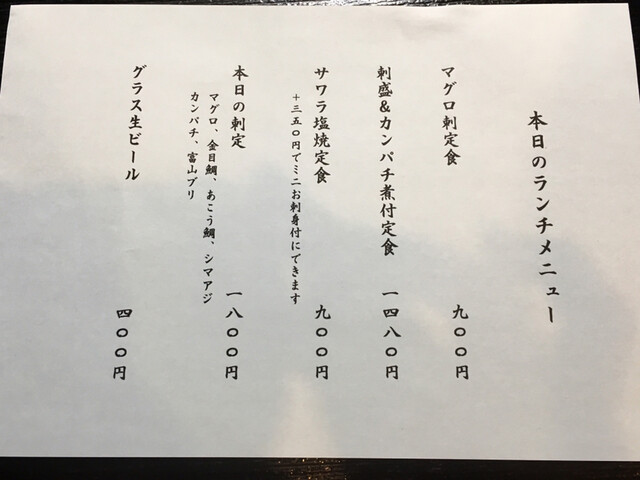 本日のランチメニュー
マグロ刺定食 九〇〇円
刺盛&カンパチ煮付定食 一四八〇円
サワラ塩焼定食 九〇〇円
+三五〇円でミニお刺身付にできます
本日の刺定 一八〇〇円
マグロ、金目鯛、あこう鯛、シマアジ
カンパチ、富山ブリ
グラス生ビール 四〇〇円